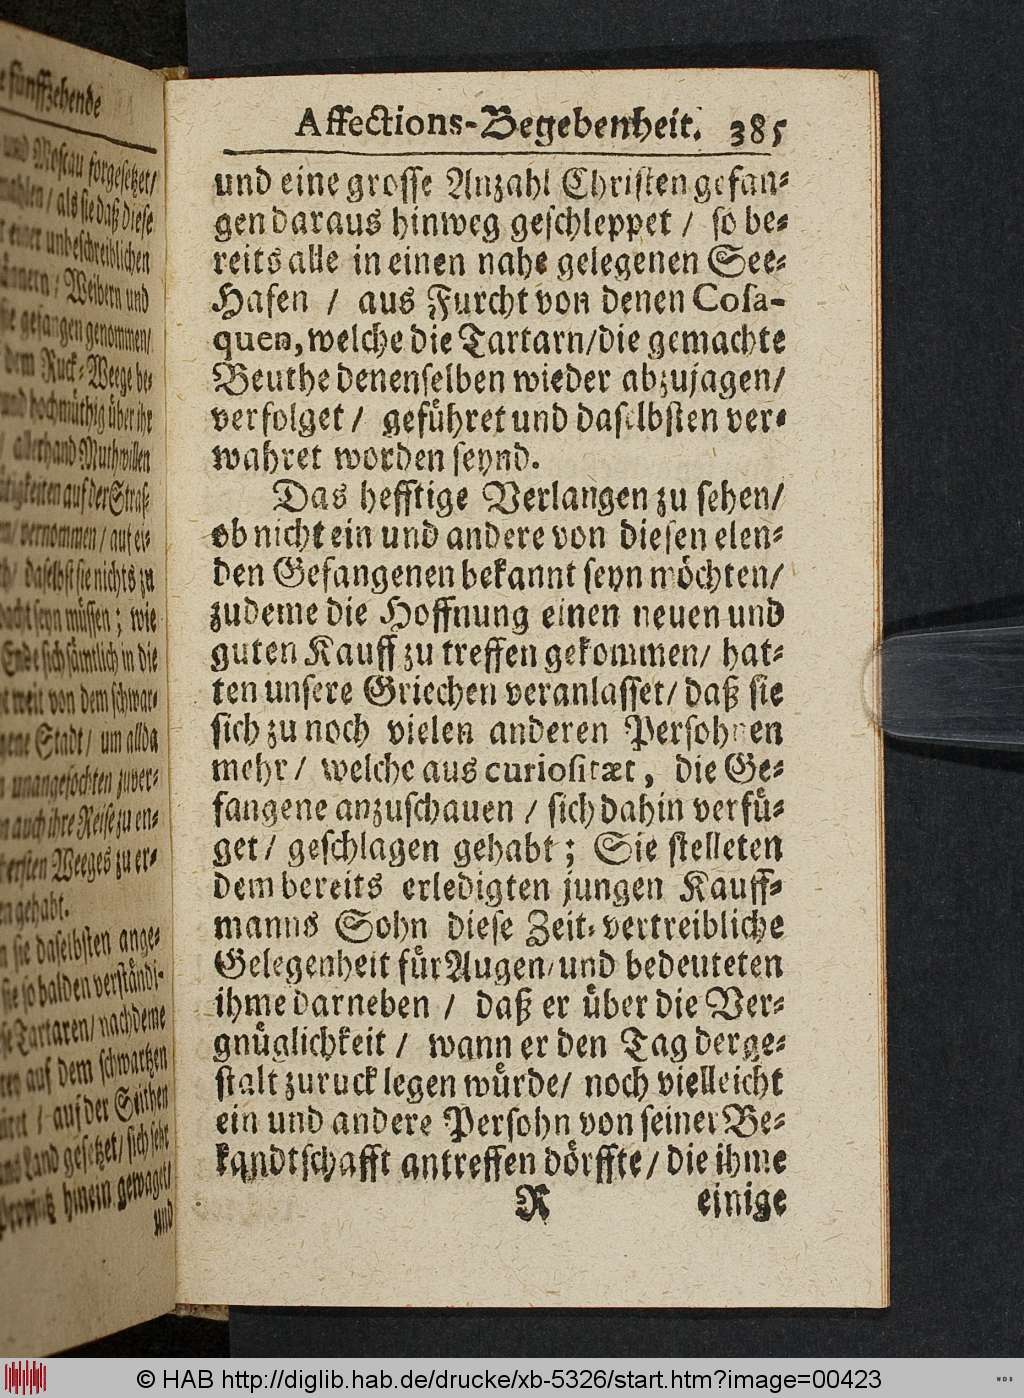 e fünffzehende
und Moscau forgesetzet/
mahlen / als sie daß diese
einer unbeschreiblichen
ännern / Weibern und
sie gefangen genommen/
dem Ruck-Weege be-
und hochmüthig über ihr
/ allerhand Muthwillen
tigkeiten auf der Straß
en / vernommen / auf ei-
daselbst sie nichts zu
acht seyn müssen; wie
Ende sich sämtlich in die
weit von dem schwar-
gene Stadt / um allda
unangefochten zu ver-
auch ihre Reise zu en-
ersten Weeges zu er-
en gehabt.
sie daselbsten ange-
sie so balden verständi-
Tartaren / nachdeme
auf dem schwartzen
/ auf der Seithen
Land gesetzet / sich sehr
Provintz hinein gewaget /
und
Affections-Begebenheit. 385
und eine grosse Anzahl Christen gefan-
gen daraus hinweg geschleppet / so be-
reits alle in einen nahe gelegenen See-
Hafen / aus Furcht von denen Cosa-
quen, welche die Tartarn/die gemachte
Beuthe denenselben wieder abzujagen/
verfolget / geführet und daselbsten ver-
wahret worden seynd.
Das hefftige Verlangen zu sehen/
ob nicht ein und andere von diesen elen-
den Gefangenen bekannt seyn möchten/
zudeme die Hoffnung einen neuen und
guten Kauff zu treffen gekommen/ hat-
ten unsere Griechen veranlasset/ daß sie
sich zu noch vielen anderen Persohnen
mehr / welche aus curiositæt, die Ge-
fangene anzuschauen / sich dahin verfü-
get / geschlagen gehabt; Sie stelleten
dem bereits erledigten jungen Kauff-
manns Sohn diese Zeit-vertreibliche
Gelegenheit für Augen/und bedeuteten
ihme darneben / daß er über die Ver-
gnüglichkeit / wann er den Tag derge-
stalt zuruck legen würde/ noch vielleicht
ein und andere Persohn von seiner Be-
kandtschafft antreffen dörffte / die ihme
R einige
© HAB http://diglib.hab.de/drucke/xb-5326/start.htm?image=00423